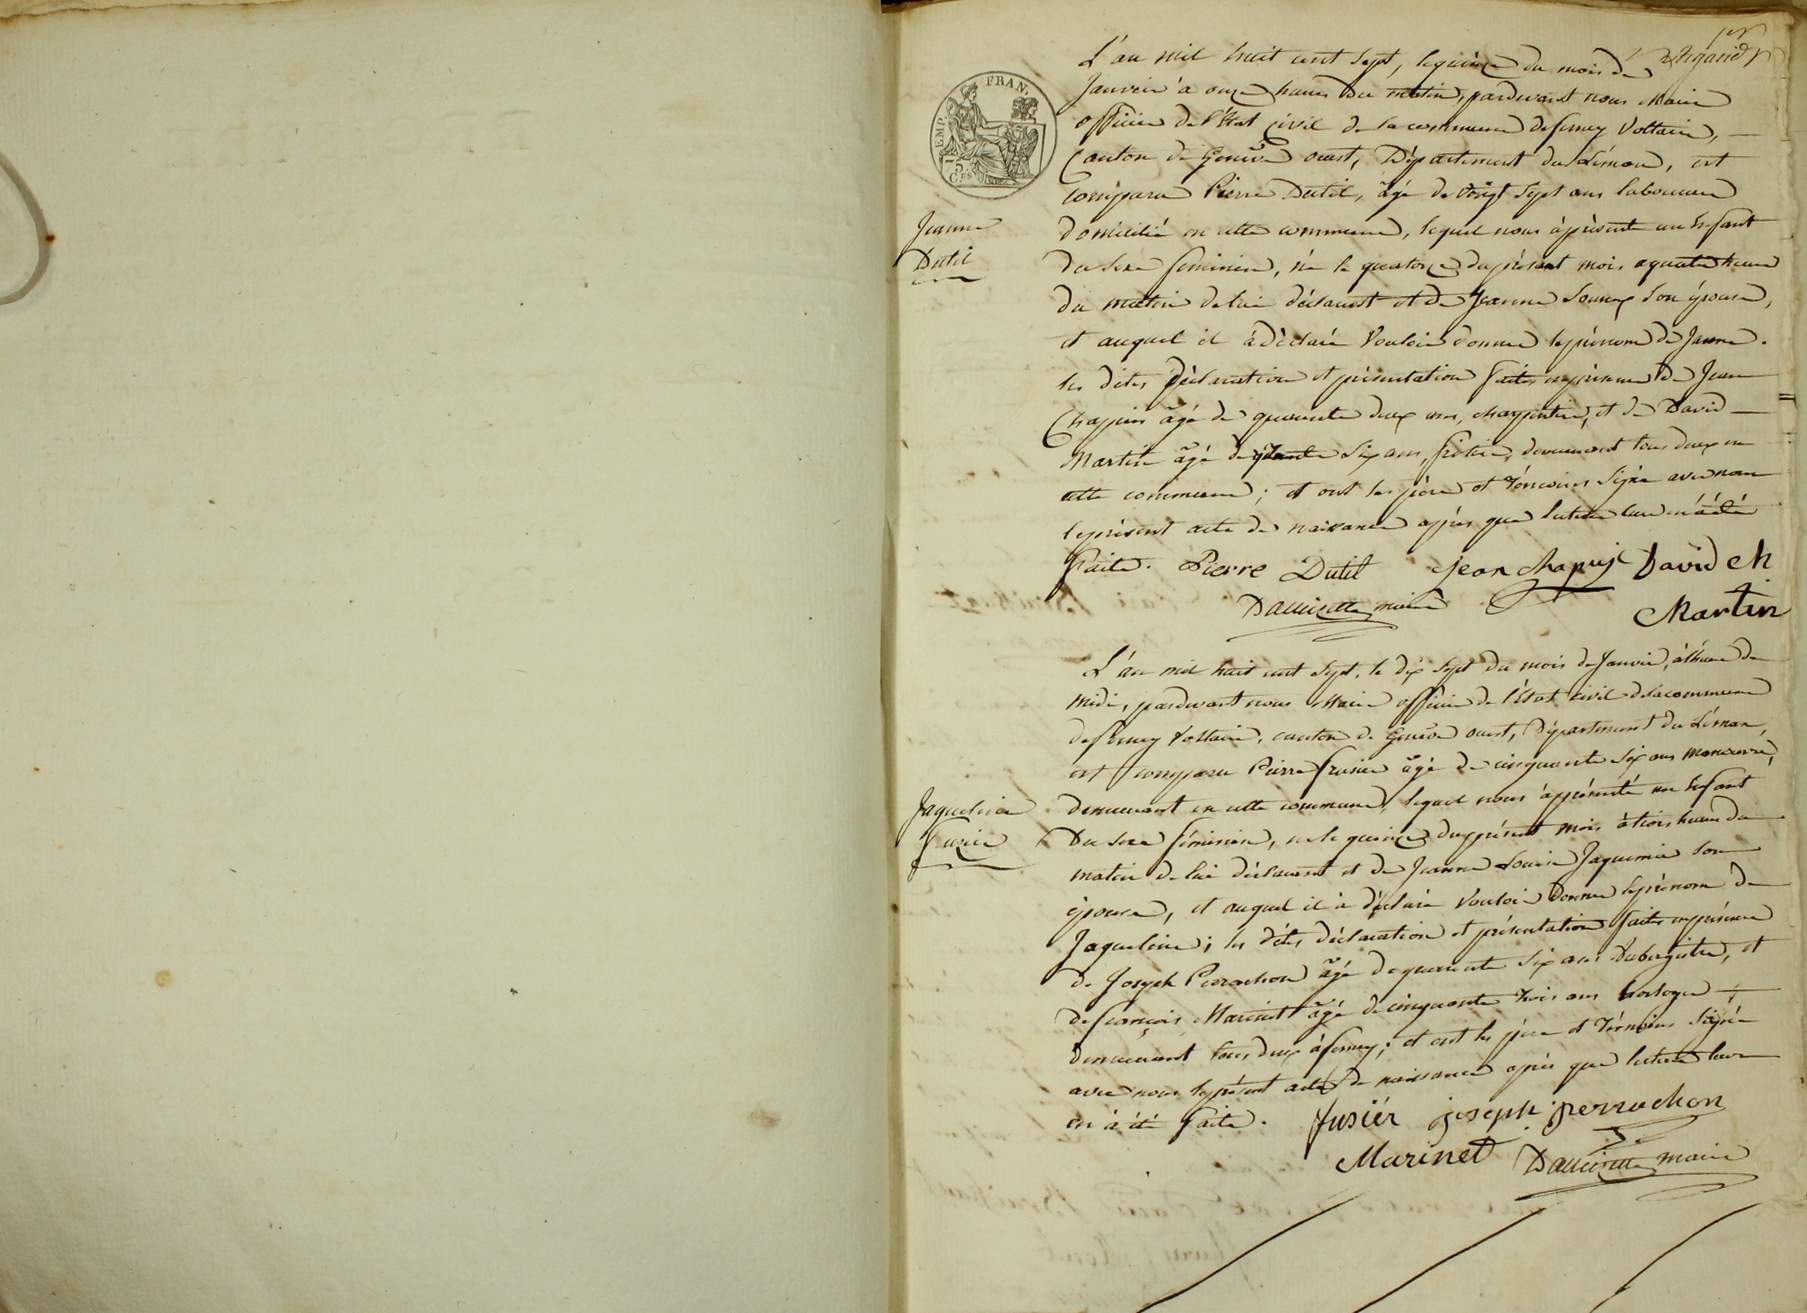 L'an mil huit cent sept, le quinze du mois de
Janvier à onze heures du matin, pardevant nous Maire
officier de l'état Civil de la commune de ferney Voltaire,
Canton de Genève ouest, Département du Léman, est
comparu Pierre Dutil, âgé de vingt sept ans laboureur
EMP. FRAN.
Jeanne
Dutil
domicilié en cette commune, lequel nous à présenté un Enfant
du sexe féminin, né le quatorze du présent mois à quatre heures
du matin de lui déclarant et de Jeanne son épouse,
et auquel il à déclaré Vouloir donner le prénom de Jeanne.
les dites déclaration et présentation faites en présence de Jean
Chapuis âgé de quarante deux ans, charpentier, et de David
Martin âgé de six ans, demeurant tous deux en
cette commune; et ont les père et témoins signé avec nous
le présent acte de naissance après que lecture leur en à été
faite. Pierre Dutil Jean Chapuis David M
maire
Martin
L'an mil huit cent sept, le dix sept du mois de Janvier, à l'heure de
midi, pardevant nous Maire officier de l'état civil de la commune
de ferney Voltaire, canton de Genève ouest, Département du Léman,
est comparu Pierre fusier âgé de cinquante six ans manœuvre,
Jaqueline
fusier
demeurant en cette commune, lequel nous à présenté un Enfant
Du sexe féminin, né le quinze du présent mois à trois heures du
matin de lui déclarant et de Jeanne Louise Jaquemie son
épouse, et auquel il à déclaré Vouloir Donner le prénom de
Jaqueline; les dites déclaration et présentation faites en présence
de Joseph Perrachon âgé de quarante six ans aubergiste, et
de françois Marinet âgé de cinquante trois ans horloger
demeurant tous deux à ferney; et ont les père et témoins signé
avec nous le présent acte de naissance après que lecture leur
en à été faite. fusiér joseph perrachon
Marinet maire